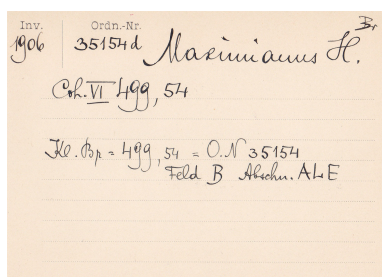 Inv. Ordn.-Nr. Br
1906 35154d Maximianus H.
Coh. VI 499, 54
Kl. Br = 499, 54 = O.N 35154
Feld B Abschn. ALE